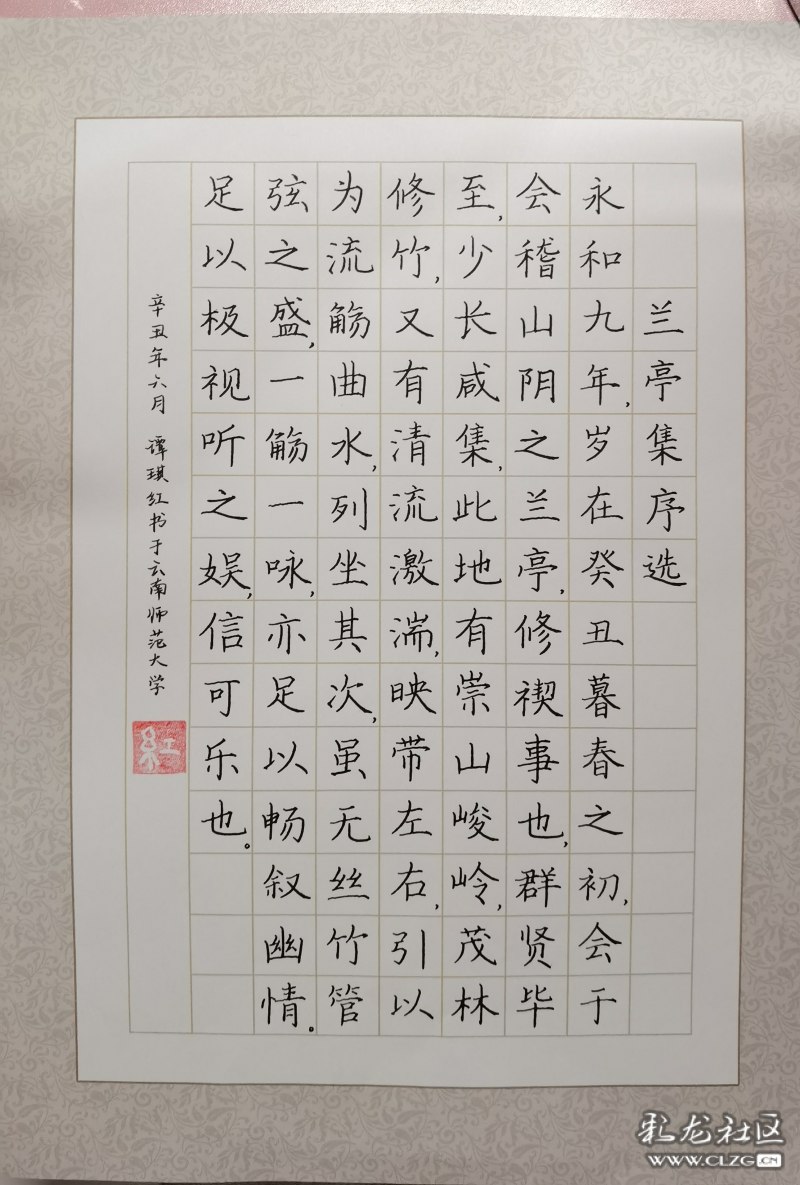 兰亭集序选
永和九年,岁在癸丑暮春之初,会于
会稽山阴之兰亭,修禊事也,群贤毕
至,少长咸集,此地有崇山峻岭,茂林
修竹,又有清流激湍,映带左右,引以
为流觞曲水,列坐其次,虽无丝竹管
弦之盛,一觞一咏,亦足以畅叙幽情。
足以极视听之娱,信可乐也。
辛丑年六月 谭琪红书于云南师范大学
红
彩龙社区
WWW.CLZG.CN